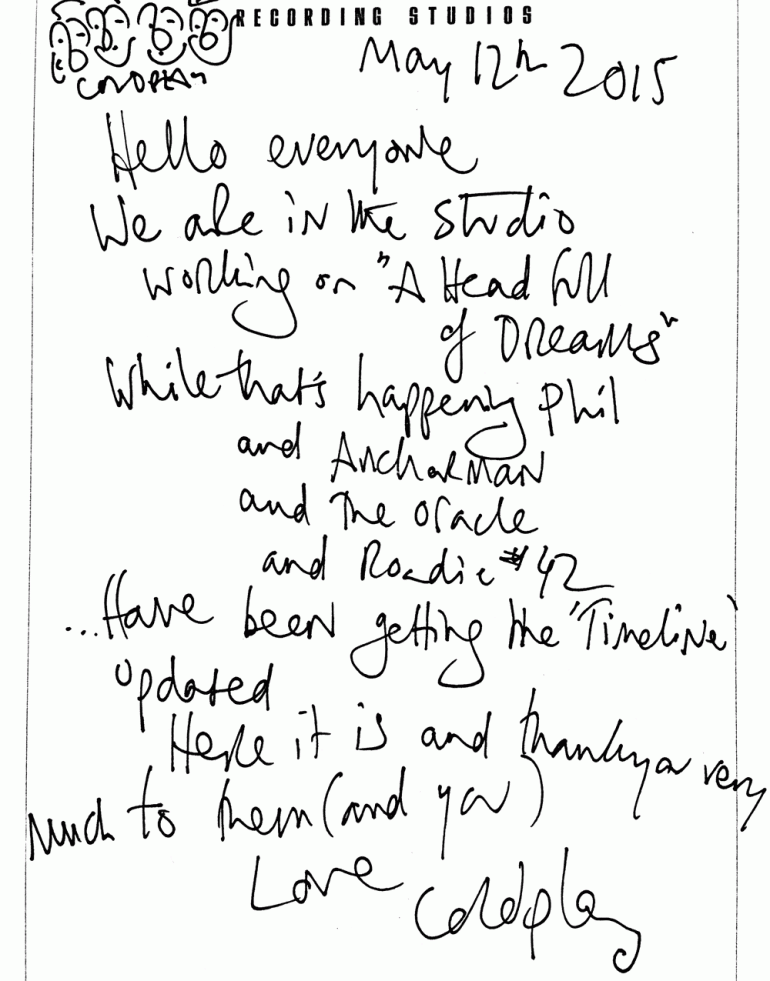 RECORDING STUDIOS
COLDPLAY
May 12th 2015
Hello everyone
We are in the studio
working on "A Head Full
of Dreams"
While that's happening Phil
and Anchorman
and The Oracle
and Roadie #42
...Have been getting the 'Timeline'
updated
Here it is and thankyou very
much to them (and you)
Love
Coldplay